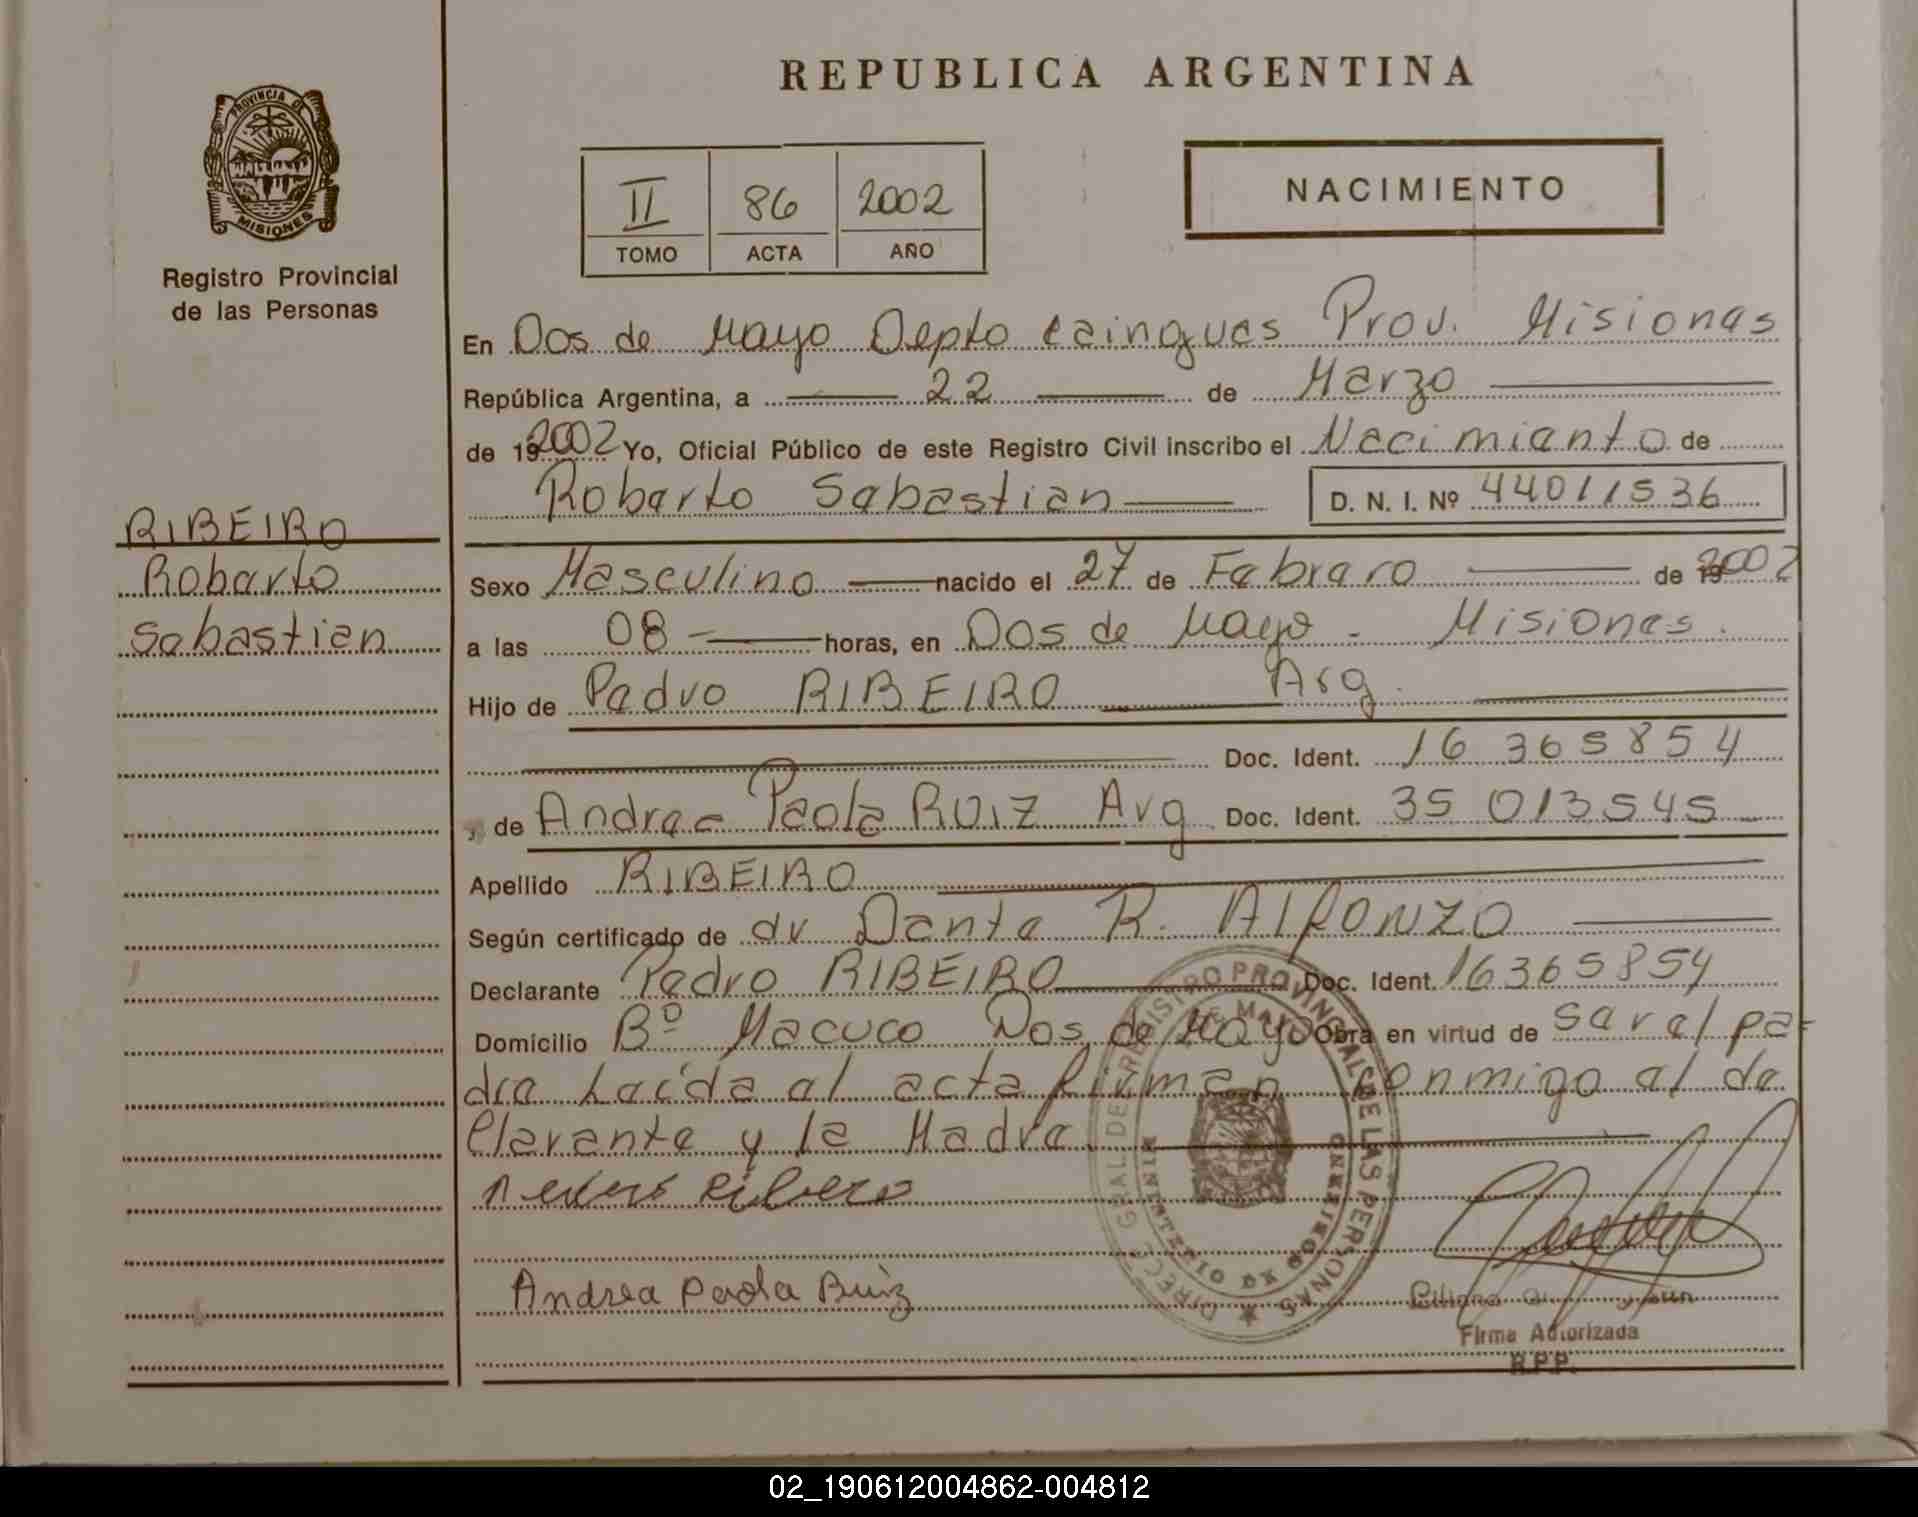 REPUBLICA ARGENTINA
PROVINCIA DE
MISIONES
Registro Provincial
de las Personas
II 86 2002
TOMO ACTA AÑO
NACIMIENTO
En Dos de Mayo Depto Cainguas Prov. Misiones
República Argentina, a 22 de Marzo
de 192002 Yo, Oficial Público de este Registro Civil inscribo el Nacimiento de
Roberto Sebastian D. N. I. Nº 44011536
RIBEIRO
Roberto
Sebastian
Sexo Masculino nacido el 27 de Febrero de 192002
a las 08 - horas, en Dos de Mayo - Misiones.
Hijo de Pedro RIBEIRO Arg.
Doc. Ident. 16 365854
, de Andrea Paola RUIZ Arg Doc. Ident. 35 013545
Apellido RIBEIRO
Según certificado de dr Dante R. AlfONZO
Declarante Pedro RIBEIRO Doc. Ident. 16365854
Domicilio Bº Macuco Dos de Mayo Obra en virtud de Ser el pa-
dre Leída el acta firman conmigo el de
clarante y la Madre
Ribero
Andrea Paola Ruiz
DIREC. GRAL. DE REGISTRO PROVINCIAL DE LAS PERSONAS
MINISTERIO DE GOBIERNO
Firma Autorizada
R.P.P.
02_190612004862-004812